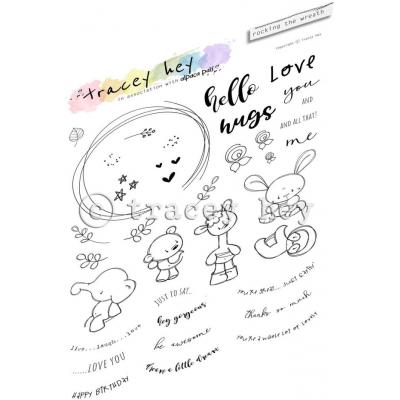 tracey hey
in association with alpaca pals
rocking the wreath
copyright © tracey hey
hello
LOVE
you
hugs
AND
AND ALL THAT!
me
© tracey hey
JUST TO SAY...
hey gorgeous
be awesome
Have a little dance
live...laugh...love
......LOVE YOU
HAPPY BIRTHDAY
you're just...just sayin'
thanks so much
you're a whole lot of lovely